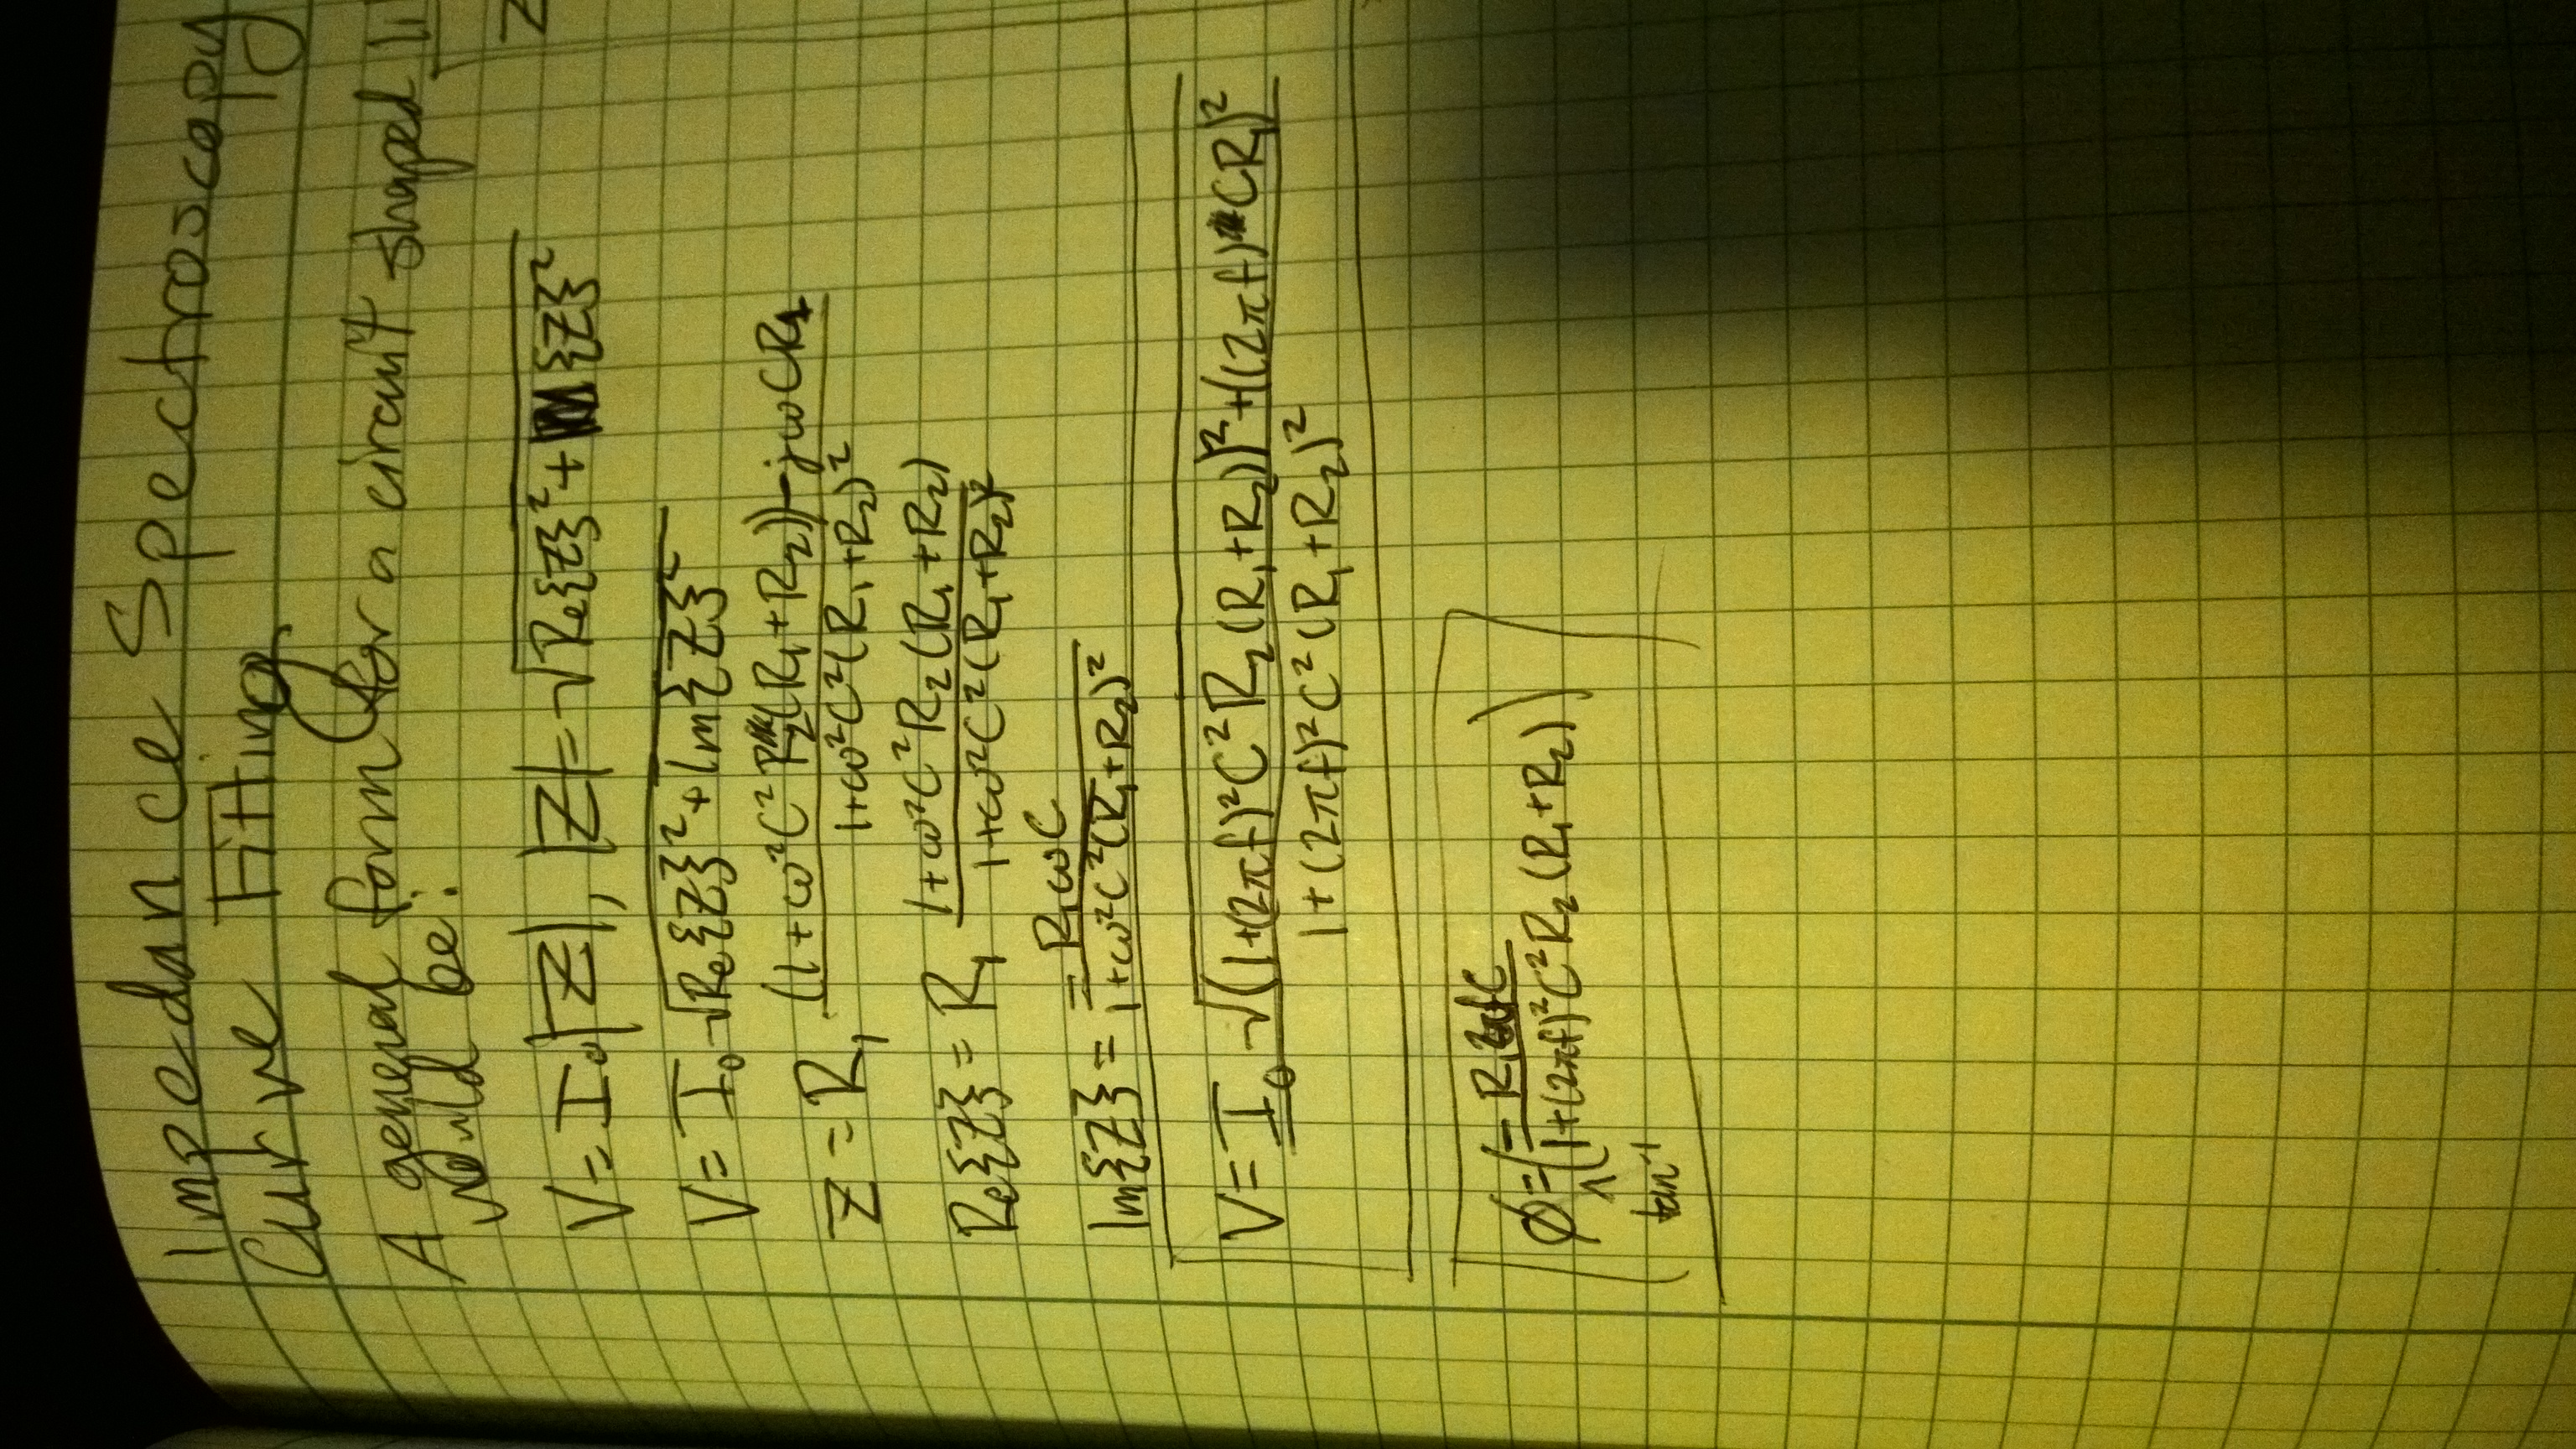 Impedance Spectroscopy
Curve Fitting
A general form for a circuit shaped
would be:
Z
V = I₀|Z|, |Z| = √(Re{Z}² + Im{Z}²)
V = I₀ √(Re{Z}² + Im{Z}²)
Z = R₁ ((1+ω²C²R₂(R₁+R₂)) - jωCR₁) / (1+ω²C²(R₁+R₂)²)
Re{Z} = R₁ (1+ω²C²R₂(R₁+R₂)) / (1+ω²C²(R₁+R₂)²)
Im{Z} = -R₁ωC / (1+ω²C²(R₁+R₂)²)
V = I₀ √((1+(2πf)²C²R₂(R₁+R₂))² + ((2πf)CR₁)²) / (1+(2πf)²C²(R₁+R₂)²)
φ = tan⁻¹(-R₁2πfC / (1+(2πf)²C²R₂(R₁+R₂)))